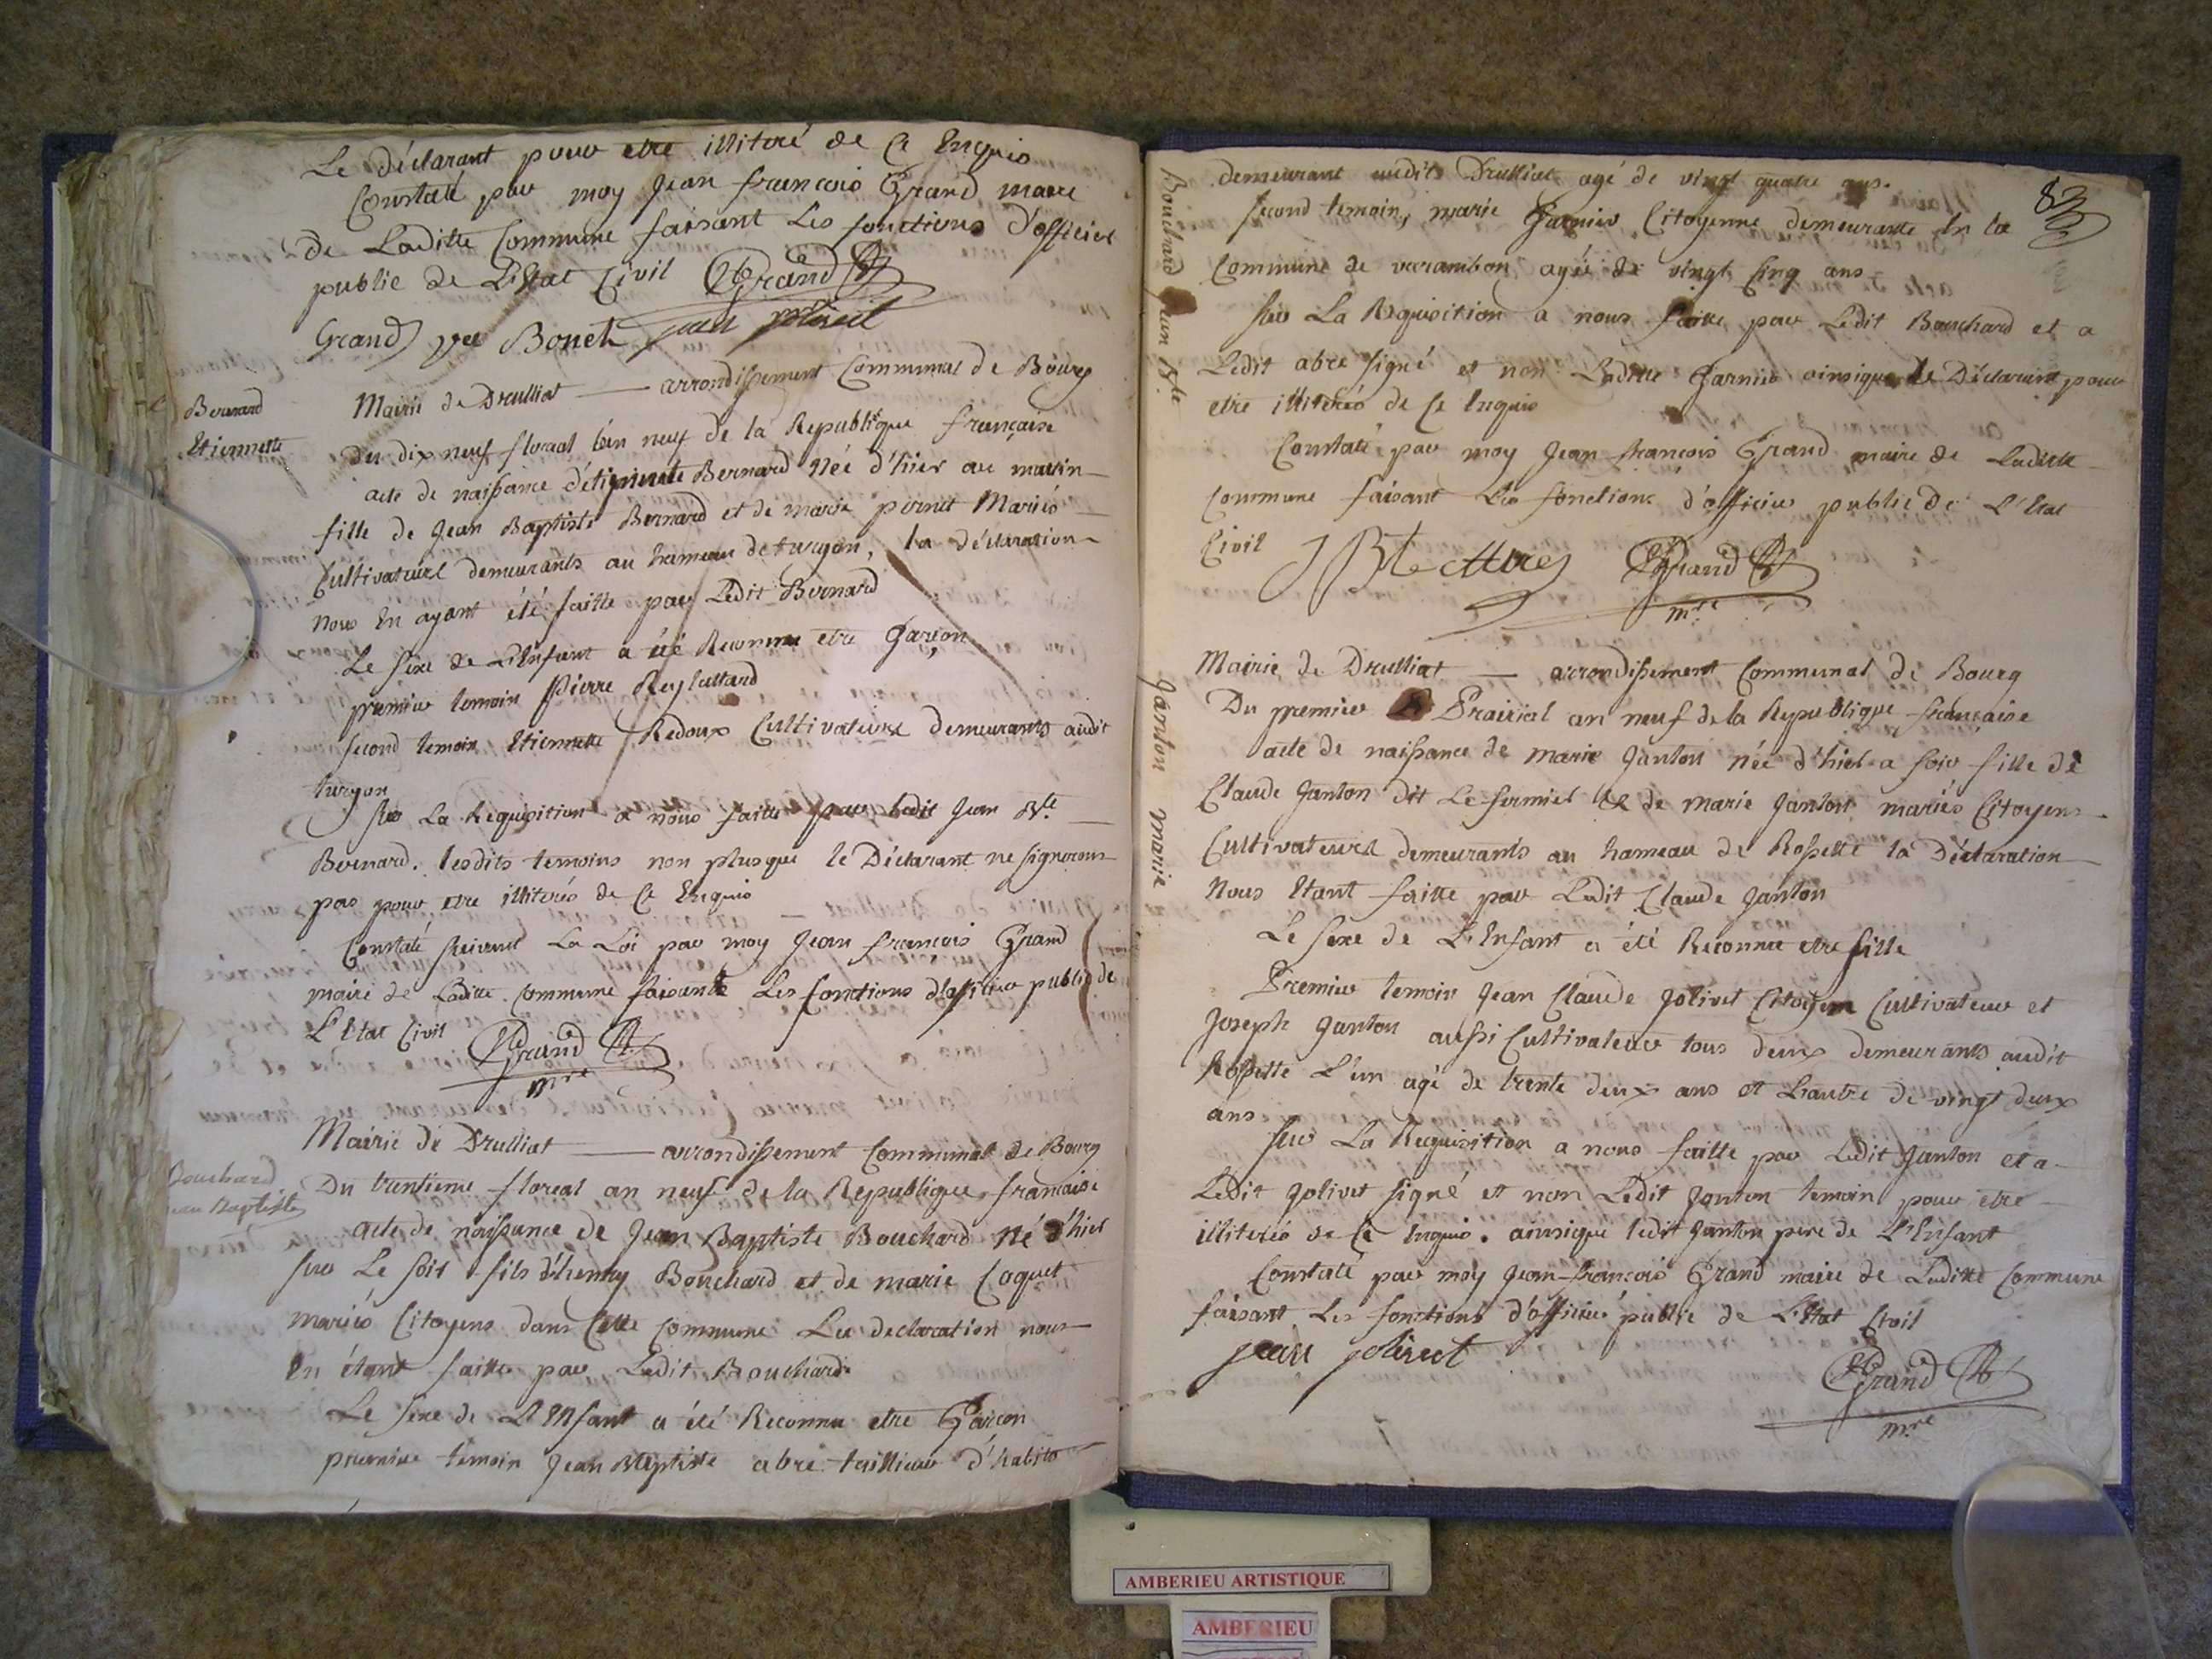 Le déclarant pour etre illiteré de ce Enquis
Constaté par moy Jean francois Grand maire
de Laditte Commune faisant Les fonctions d'officier
public de L'Etat Civil Grand
Grand Bouch jean jolivet
Bernard
Etiennette
Mairie de Drulliat — arrondissement Communal de Bourg
du dix neuf floreal l'an neuf de la Republique francaise
acte de naissance d'étiennette Bernard Née d'hier au matin
fille de Jean Baptiste Bernard et de marie pernet Mariés
Cultivateurs demeurants au hameau de turgon, la déclaration
nous En ayant été faitte par Ledit Bernard
Le sexe de L'Enfant a été Reconnu etre garçon
premier temoin Pierre
second temoin Etiennette Redoux Cultivateurs demeurants audit
turgon
sur La Requisition a nous faitte par ledit Jean Bte
Bernard. lesdits temoins non plus que le Déclarant ne signeront
pas pour etre illiterés de Ce Enquis
Constaté suivant La Loi par moy Jean francois Grand
maire de Laditte Commune faisant Les fonctions d'officier public de
L'Etat Civil Grand
mre
Mairie de Drulliat — arrondissement Communal de Bourg
Bouchard
Jean Baptiste
Du trentieme floreal an neuf de la Republique francaise
acte de naissance de Jean Baptiste Bouchard Né d'hier
sur Le soir fils d'henry Bouchard et de marie Coquet
mariés Citoyens dans Cette Commune La declaration nous
En étant faitte par Ledit Bouchard
Le sexe de L'Enfant a été Reconnu etre Garçon
premier temoin Jean Baptiste abre tailleur d'habits
82
Bouchard Jean Bte
demeurant audit Drulliat agé de vingt quatre ans.
second temoin, marie Garnier Citoyenne demeurante En la
Commune de varambon agée de vingt Cinq ans
sur La Requisition a nous faitte par Ledit Bouchard et a
Ledit abre signé et non Laditte Garnier ainsi que le Déclarant pour
etre illiterés de Ce Enquis
Constaté par moy Jean francois Grand maire de Laditte
Commune faisant Les fonctions d'officier public de L'Etat
Civil Grand
mre
Janton marie
Mairie de Drulliat — arrondissement Communal de Bourg
Du premier Prairial an neuf de la Republique francaise
acte de naissance de marie Janton née d'hier a soir fille de
Claude Janton dit Le fermier & de marie Janton mariés Citoyens
Cultivateurs demeurants au hameau de Rossette la Déclaration
Nous Etant faitte par Ledit Claude Janton
Le sexe de L'Enfant a été Reconnu etre fille
Premier temoin Jean Claude Jolivet Citoyen Cultivateur et
Joseph Janton aussi Cultivateur tous deux demeurants audit
Rossette L'un agé de trente deux ans et L'autre de vingt deux
ans
sur La Requisition a nous faitte par Ledit Janton et a
Ledit Jolivet signé et non Ledit Janton temoin pour etre
illiterés de Ce Enquis. ainsi que ledit Janton pere de L'Enfant
Constaté par moy Jean-francois Grand maire de Laditte Commune
faisant Les fonctions d'officier public de L'Etat Civil
jean jolivet
Grand
mre
AMBERIEU ARTISTIQUE
AMBERIEU